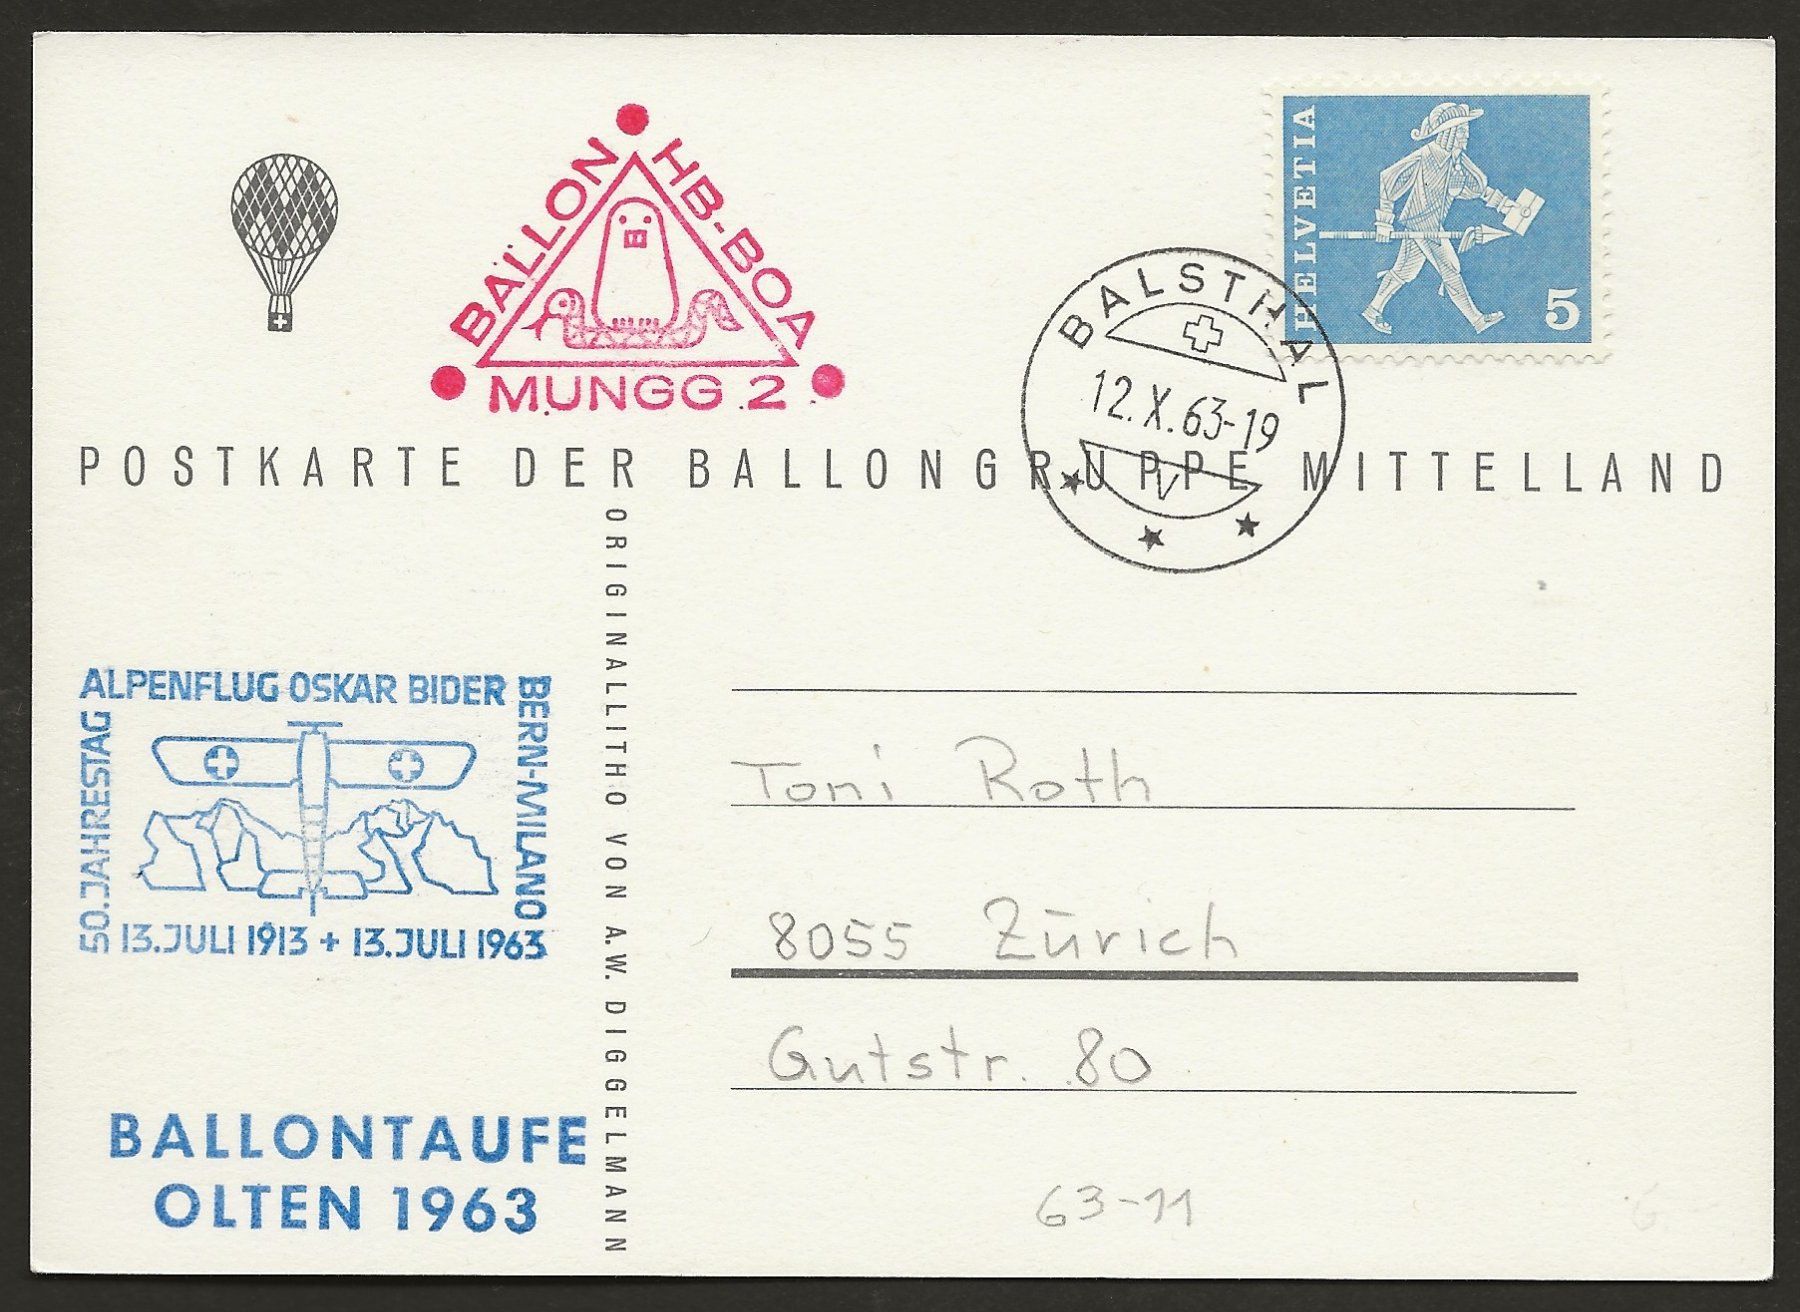 BALLON HB-BOA
MUNGG 2
HELVETIA
5
BALSTHAL
12.X.63-19
V
POSTKARTE DER BALLONGRUPPE MITTELLAND
ORIGINALLITHO VON A.W. DIGGELMANN
50. JAHRESTAG
ALPENFLUG OSKAR BIDER
BERN-MILANO
13. JULI 1913 + 13. JULI 1963
Toni Roth
8055 Zürich
Gutstr. 80
BALLONTAUFE
OLTEN 1963
63-11